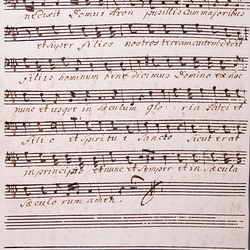 nedixit Domui Aron pusillis cum majoribus
et super filios nostros terram autem dedit
filiis hominum bene dicimus Domino ex hoc
nunc et usque in sæculum glo ria Patri et
Filio et Spiritui Sancto sicut erat
in principio et nunc et semper et in sæcula
sæculo rum amen.